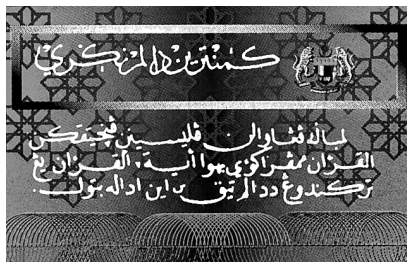 كمنترين دالم نڬري
لمباڬ ڤڠاولن دان ڤليسينن ڤنچيتقكن
القرءان ممڤراكوي بهوا أية٢ القرءان يڠ
تركندوڠ ددالم تيق س اين اداله بتول.